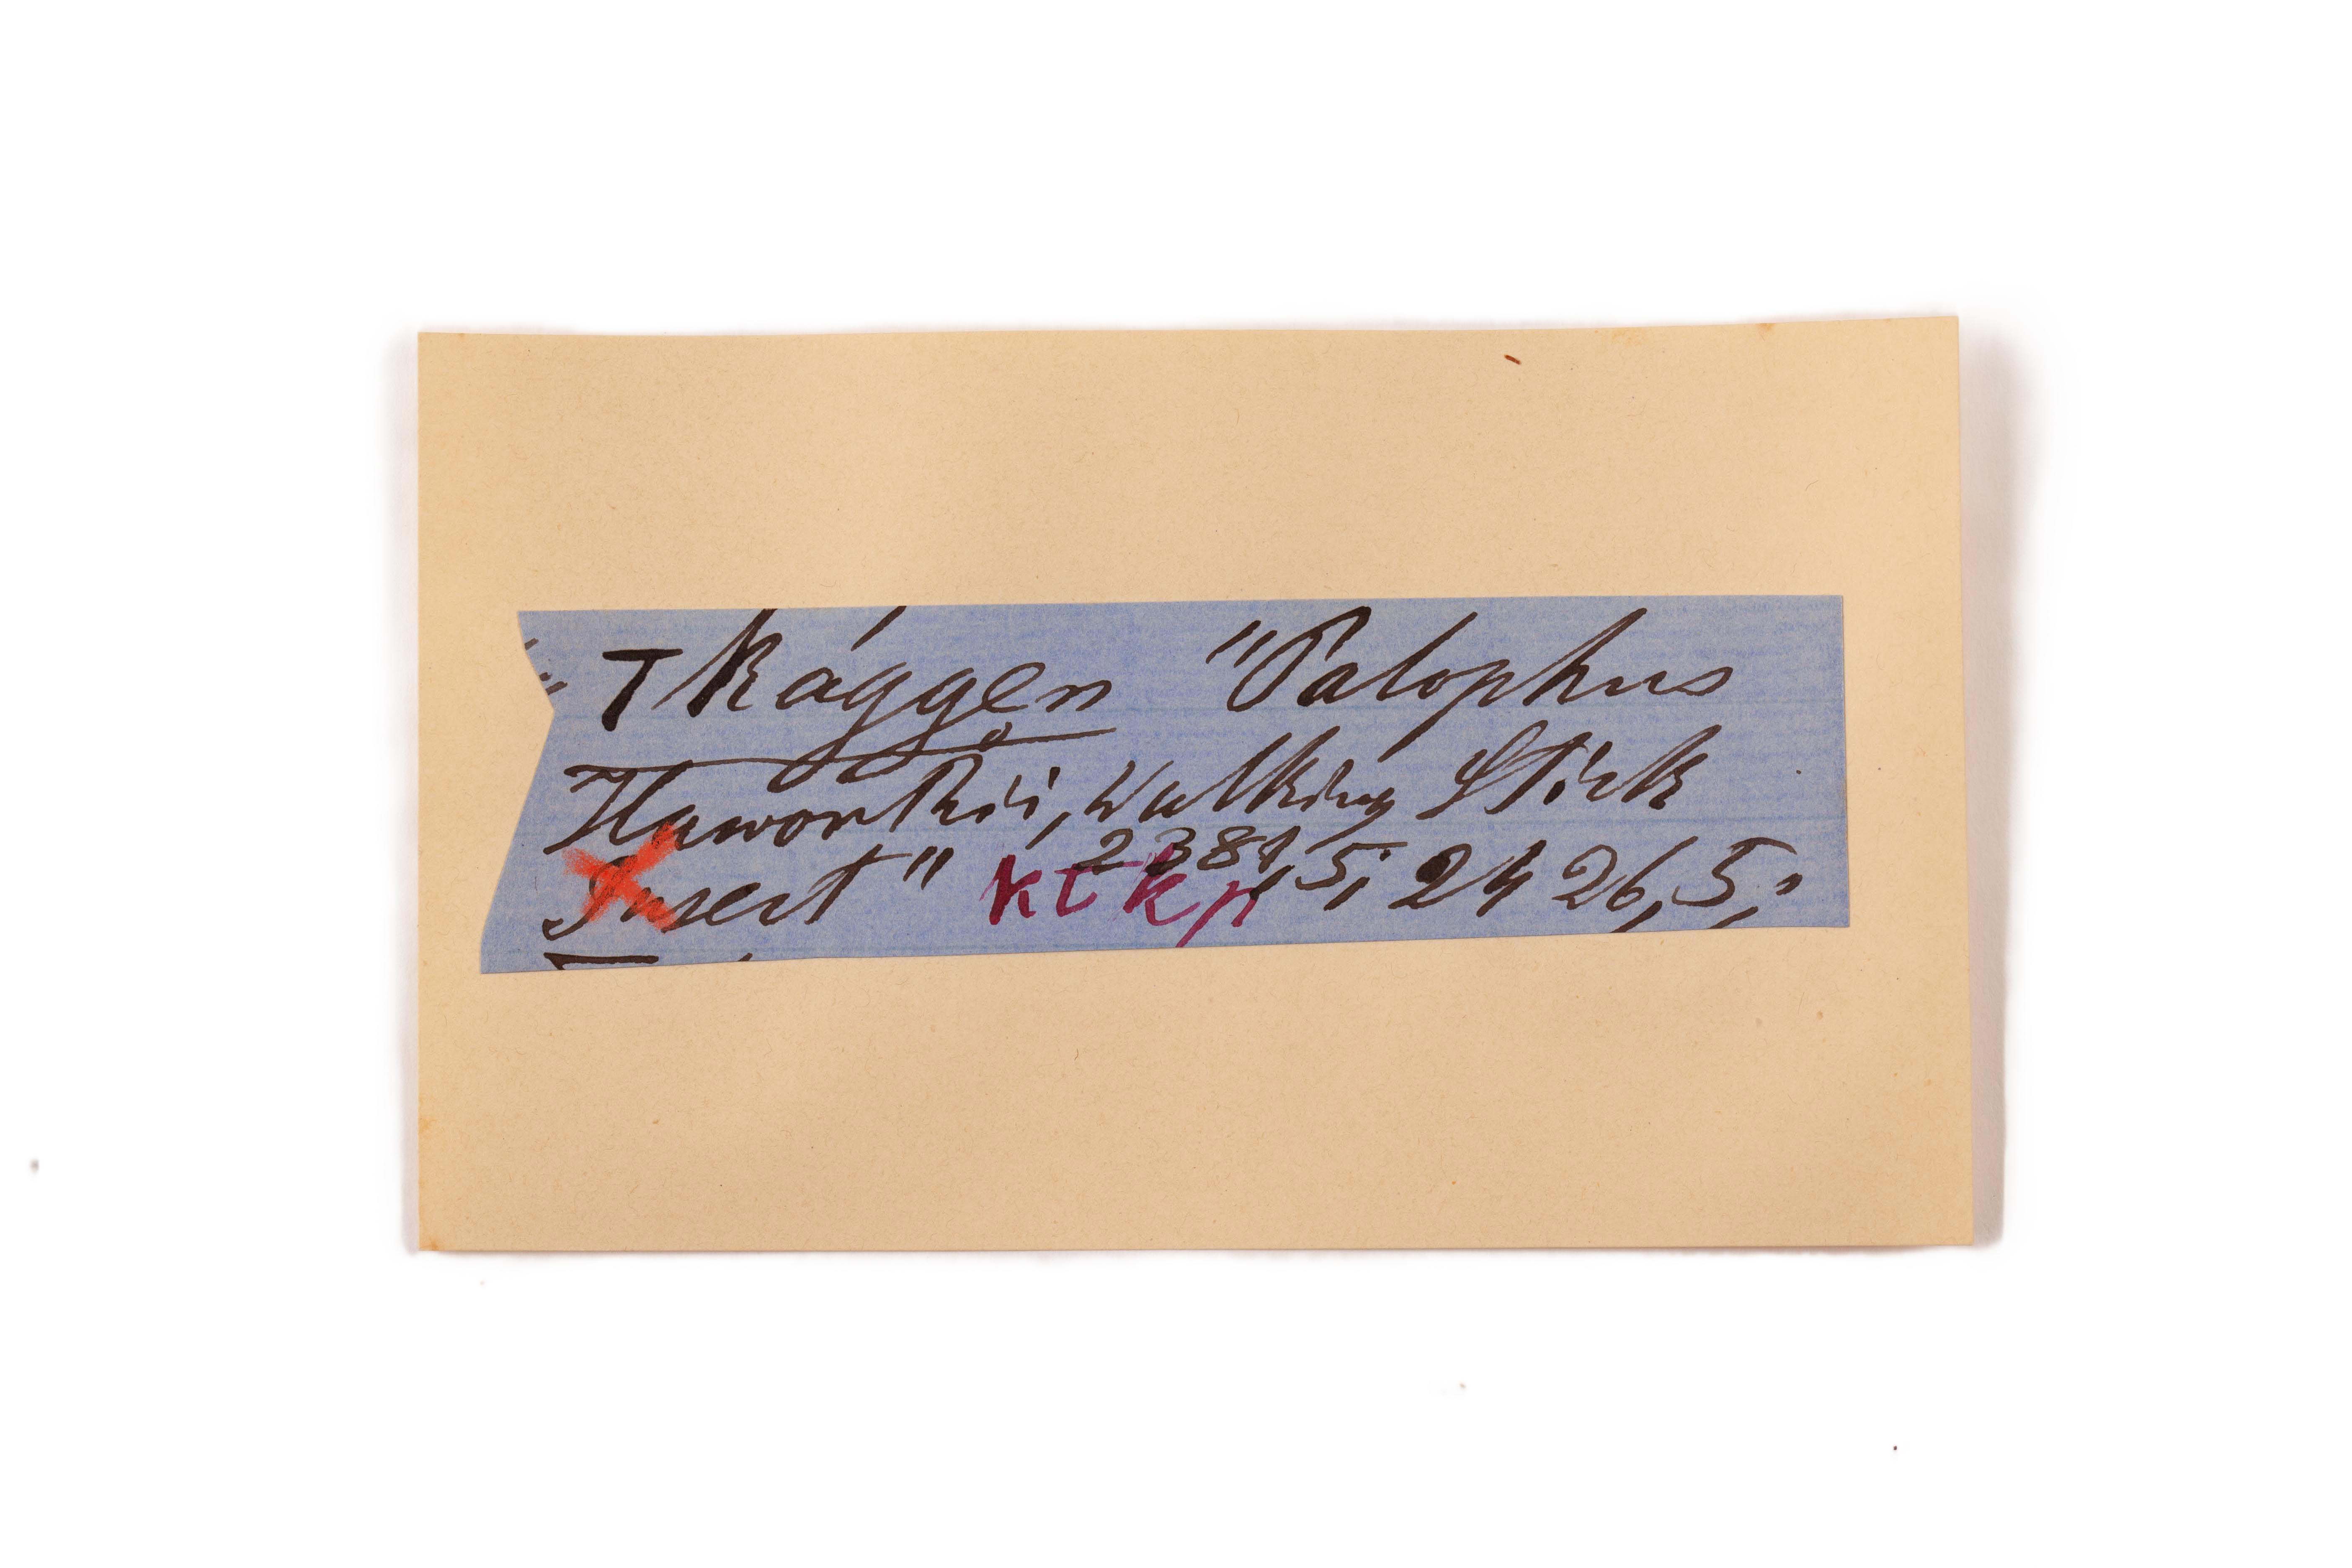 Tkággen̥ "Palophus
Haworthii, Walking Stick
Insect" 2381,5; 2426,5;
KTkp